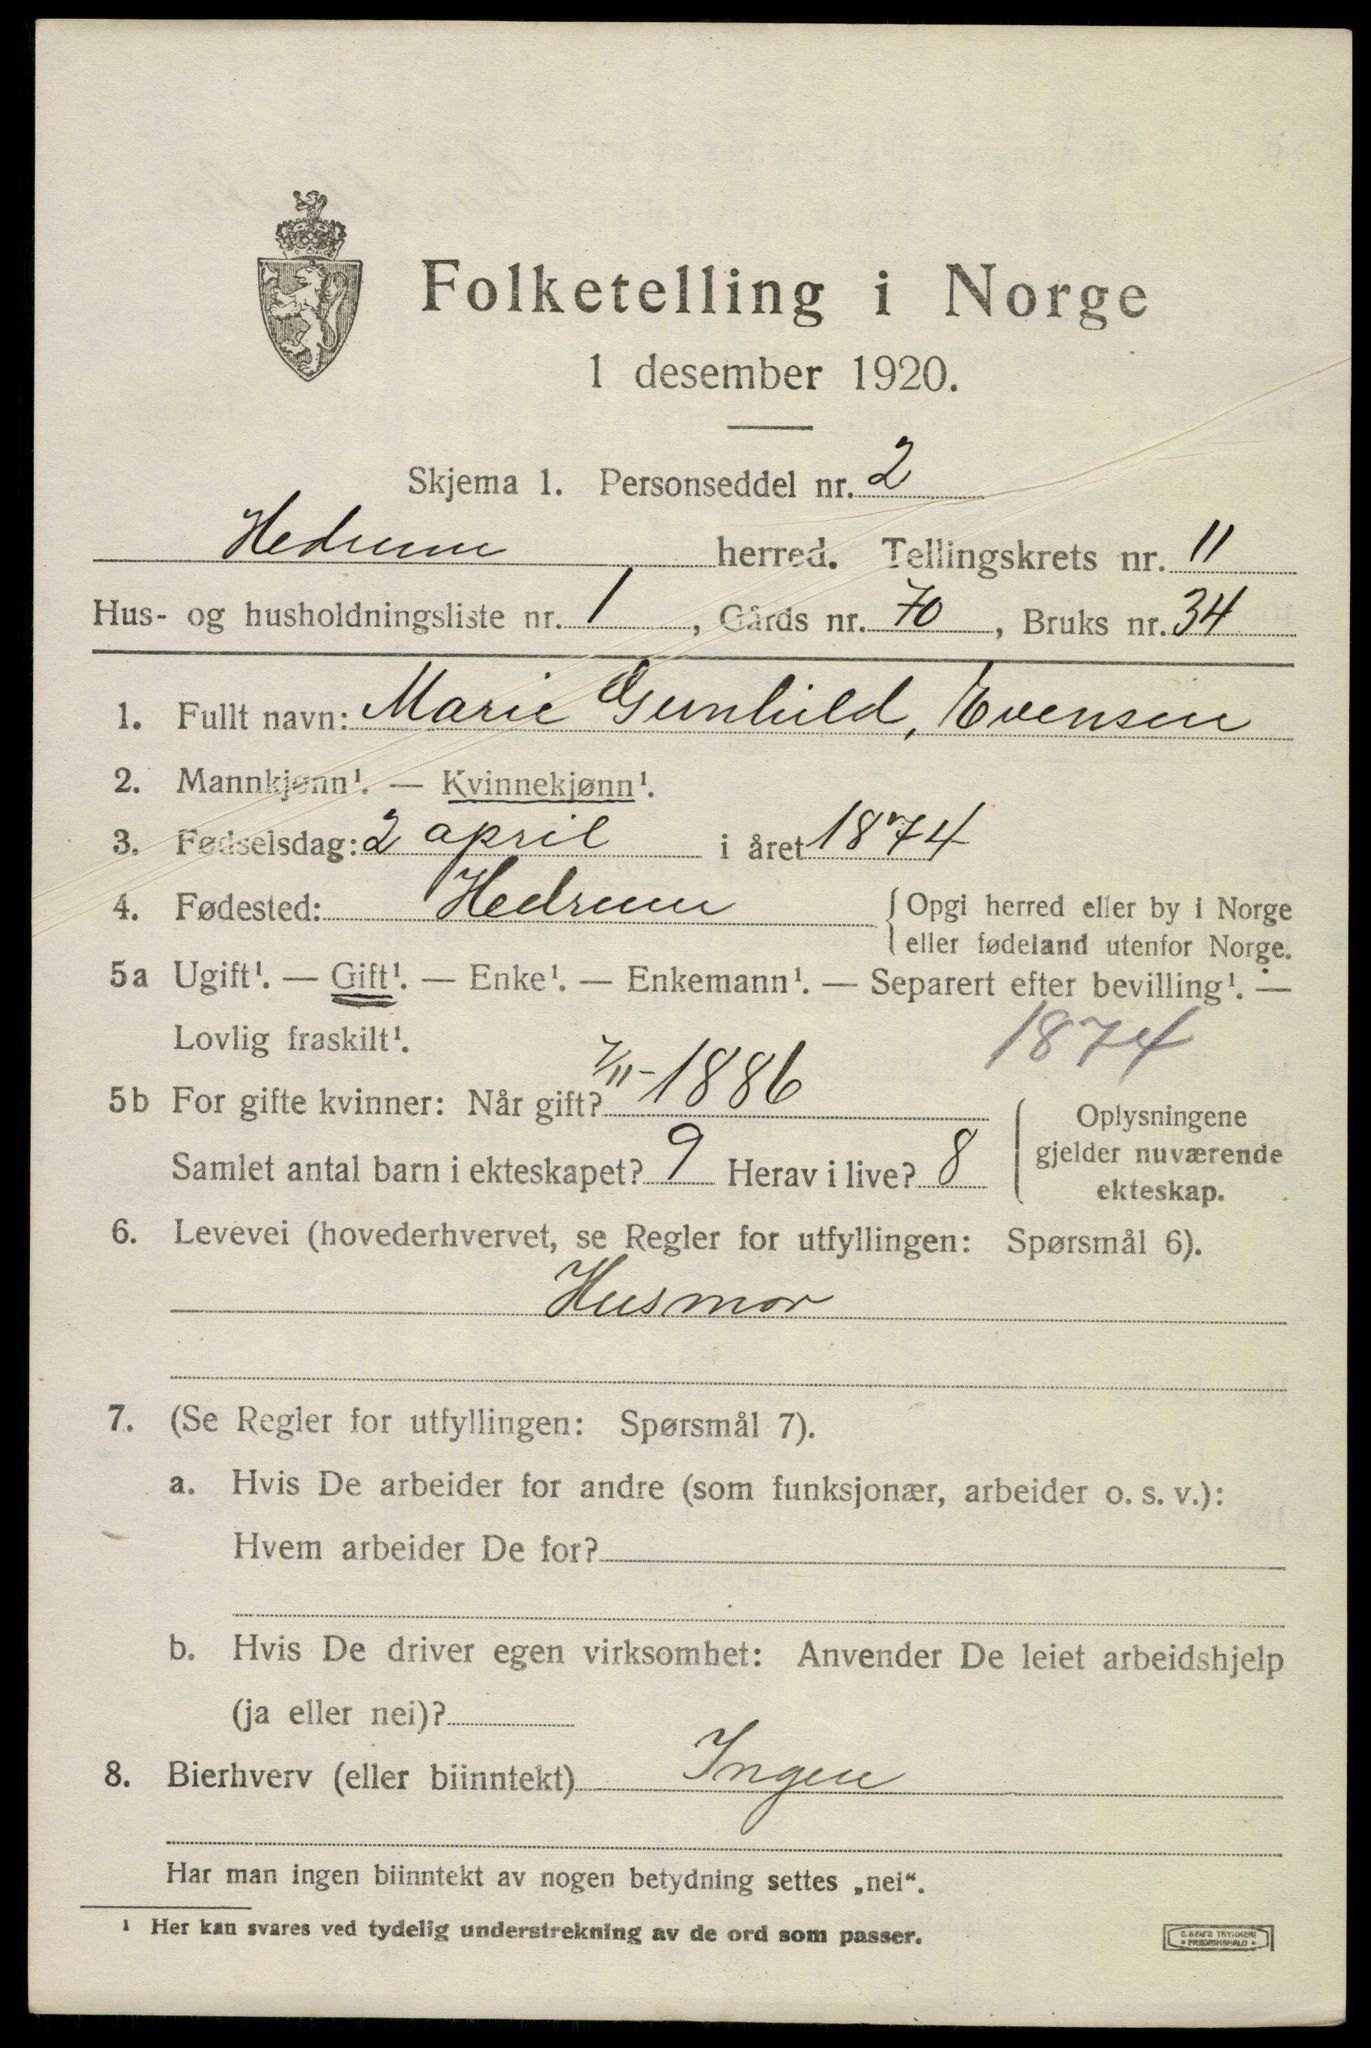 Folketelling i Norge
1 desember 1920.
Skjema 1. Personseddel nr. 2
Hedrum herred. Tellingskrets nr. 11
Hus- og husholdningsliste nr. 1, Gårds nr. 70, Bruks nr. 34
1. Fullt navn: Marie Gunhild, Evensen
2. Mannkjønn¹. — Kvinnekjønn¹.
3. Fødselsdag: 2 april i året 1874
4. Fødested: Hedrum { Opgi herred eller by i Norge
eller fødeland utenfor Norge.
5a Ugift¹. — Gift¹. — Enke¹. — Enkemann¹. — Separert efter bevilling¹. —
Lovlig fraskilt¹. 1874
5b For gifte kvinner: Når gift? 7/11-1886
Samlet antal barn i ekteskapet? 9 Herav i live? 8
Oplysningene
gjelder nuværende
ekteskap.
6. Levevei (hovederhvervet, se Regler for utfyllingen: Spørsmål 6).
Husmor
7. (Se Regler for utfyllingen: Spørsmål 7).
a. Hvis De arbeider for andre (som funksjonær, arbeider o. s. v.):
Hvem arbeider De for?
b. Hvis De driver egen virksomhet: Anvender De leiet arbeidshjelp
(ja eller nei)?
8. Bierhverv (eller biinntekt) Ingen
Har man ingen biinntekt av nogen betydning settes „nei“.
¹ Her kan svares ved tydelig understrekning av de ord som passer.
E. SEM'S TRYKKERI
• FREDRIKSHALD •